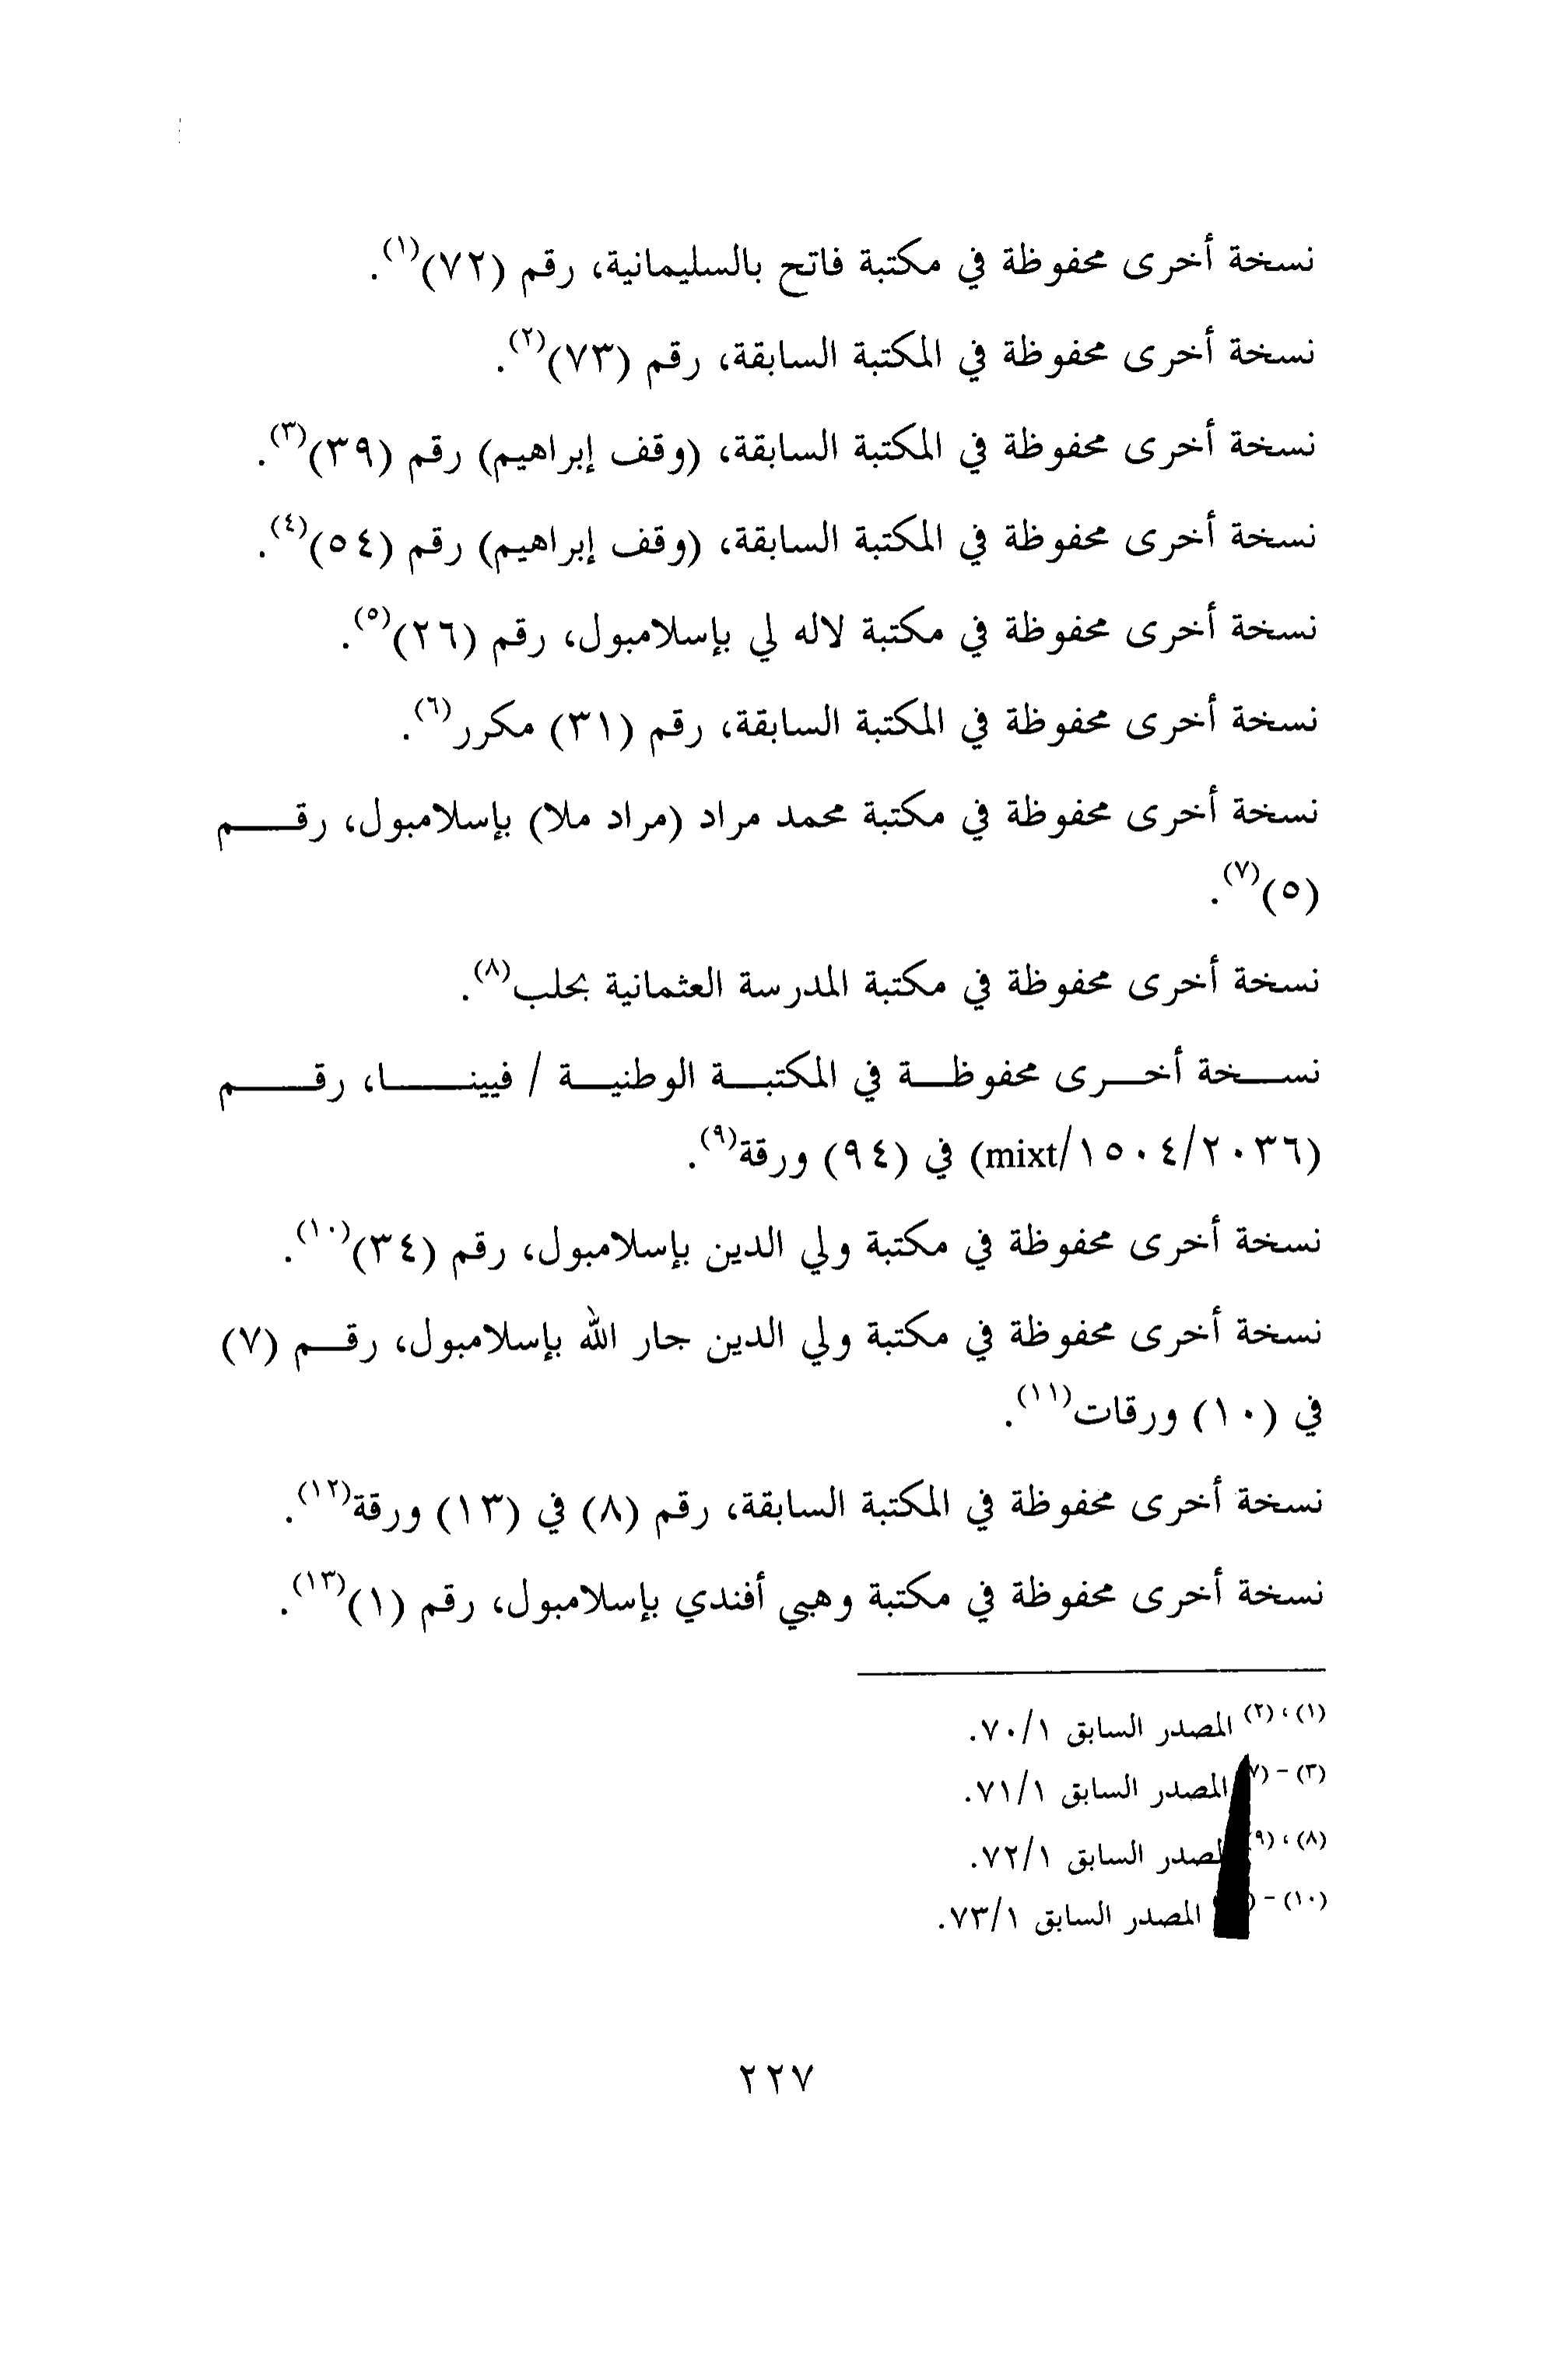 نسخة أخرى محفوظة في مكتبة فاتح بالسليمانية، رقم (٧٢)(١).
نسخة أخرى محفوظة في المكتبة السابقة، رقم (٧٣)(٢).
نسخة أخرى محفوظة في المكتبة السابقة، (وقف إبراهيم) رقم (٣٩)(٣).
نسخة أخرى محفوظة في المكتبة السابقة، (وقف إبراهيم) رقم (٥٤)(٤).
نسخة أخرى محفوظة في مكتبة لاله لي بإسلامبول، رقم (٢٦)(٥).
نسخة أخرى محفوظة في المكتبة السابقة، رقم (٣١) مكرر(٦).
نسخة أخرى محفوظة في مكتبة محمد مراد (مراد ملا) بإسلامبول، رقم
(٥)(٧).
نسخة أخرى محفوظة في مكتبة المدرسة العثمانية بحلب(٨).
نسخة أخرى محفوظة في المكتبة الوطنية / فيينا، رقم
(٢٠٣٦/١٥٠٤/mixt) في (٩٤) ورقة(٩).
نسخة أخرى محفوظة في مكتبة ولي الدين بإسلامبول، رقم (٣٤)(١٠).
نسخة أخرى محفوظة في مكتبة ولي الدين جار الله بإسلامبول، رقم (٧)
في (١٠) ورقات(١١).
نسخة أخرى محفوظة في المكتبة السابقة، رقم (٨) في (١٣) ورقة(١٢).
نسخة أخرى محفوظة في مكتبة وهبي أفندي بإسلامبول، رقم (١)(١٣).
(١)، (٢) المصدر السابق ٧٠/١.
(٣) – (٧ المصدر السابق ٧١/١.
(٨)، (٩ السابق ٧٢/١.
(١٠) – ( المصدر السابق ٧٣/١.
٢٢٧